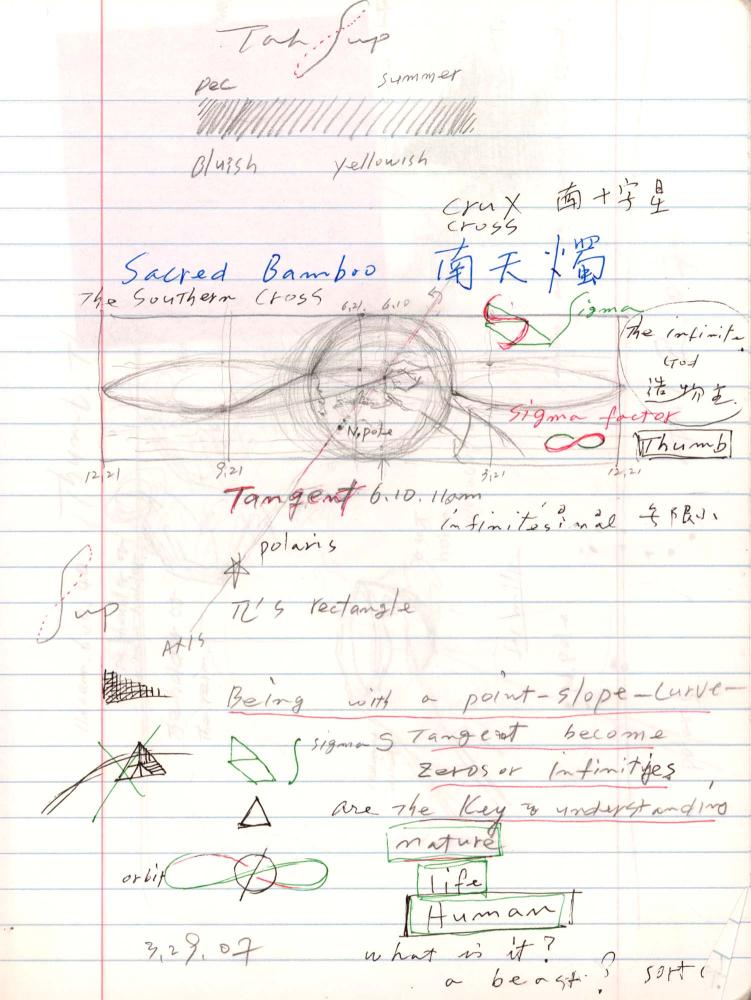 Tan Sup
Dec summer
Bluish yellowish
crux 南十字星
cross
Sacred Bamboo 南天燭
The Southern Cross 6,21 6,10
Sigma
The infinite
God
造物主
Sigma factor
N.pole
Thumb
12,21 9,21 3,21 12,21
Tangent 6.10. 11am
infinitesimal 無限小
polaris
Sup
π's rectangle
Axis
Being with a point-slope-curve-
sigma S Tangent become
zeros or Infinities
are the Key to understanding
nature
life
orbit
Human
3,29,07
what is it?
a beast?